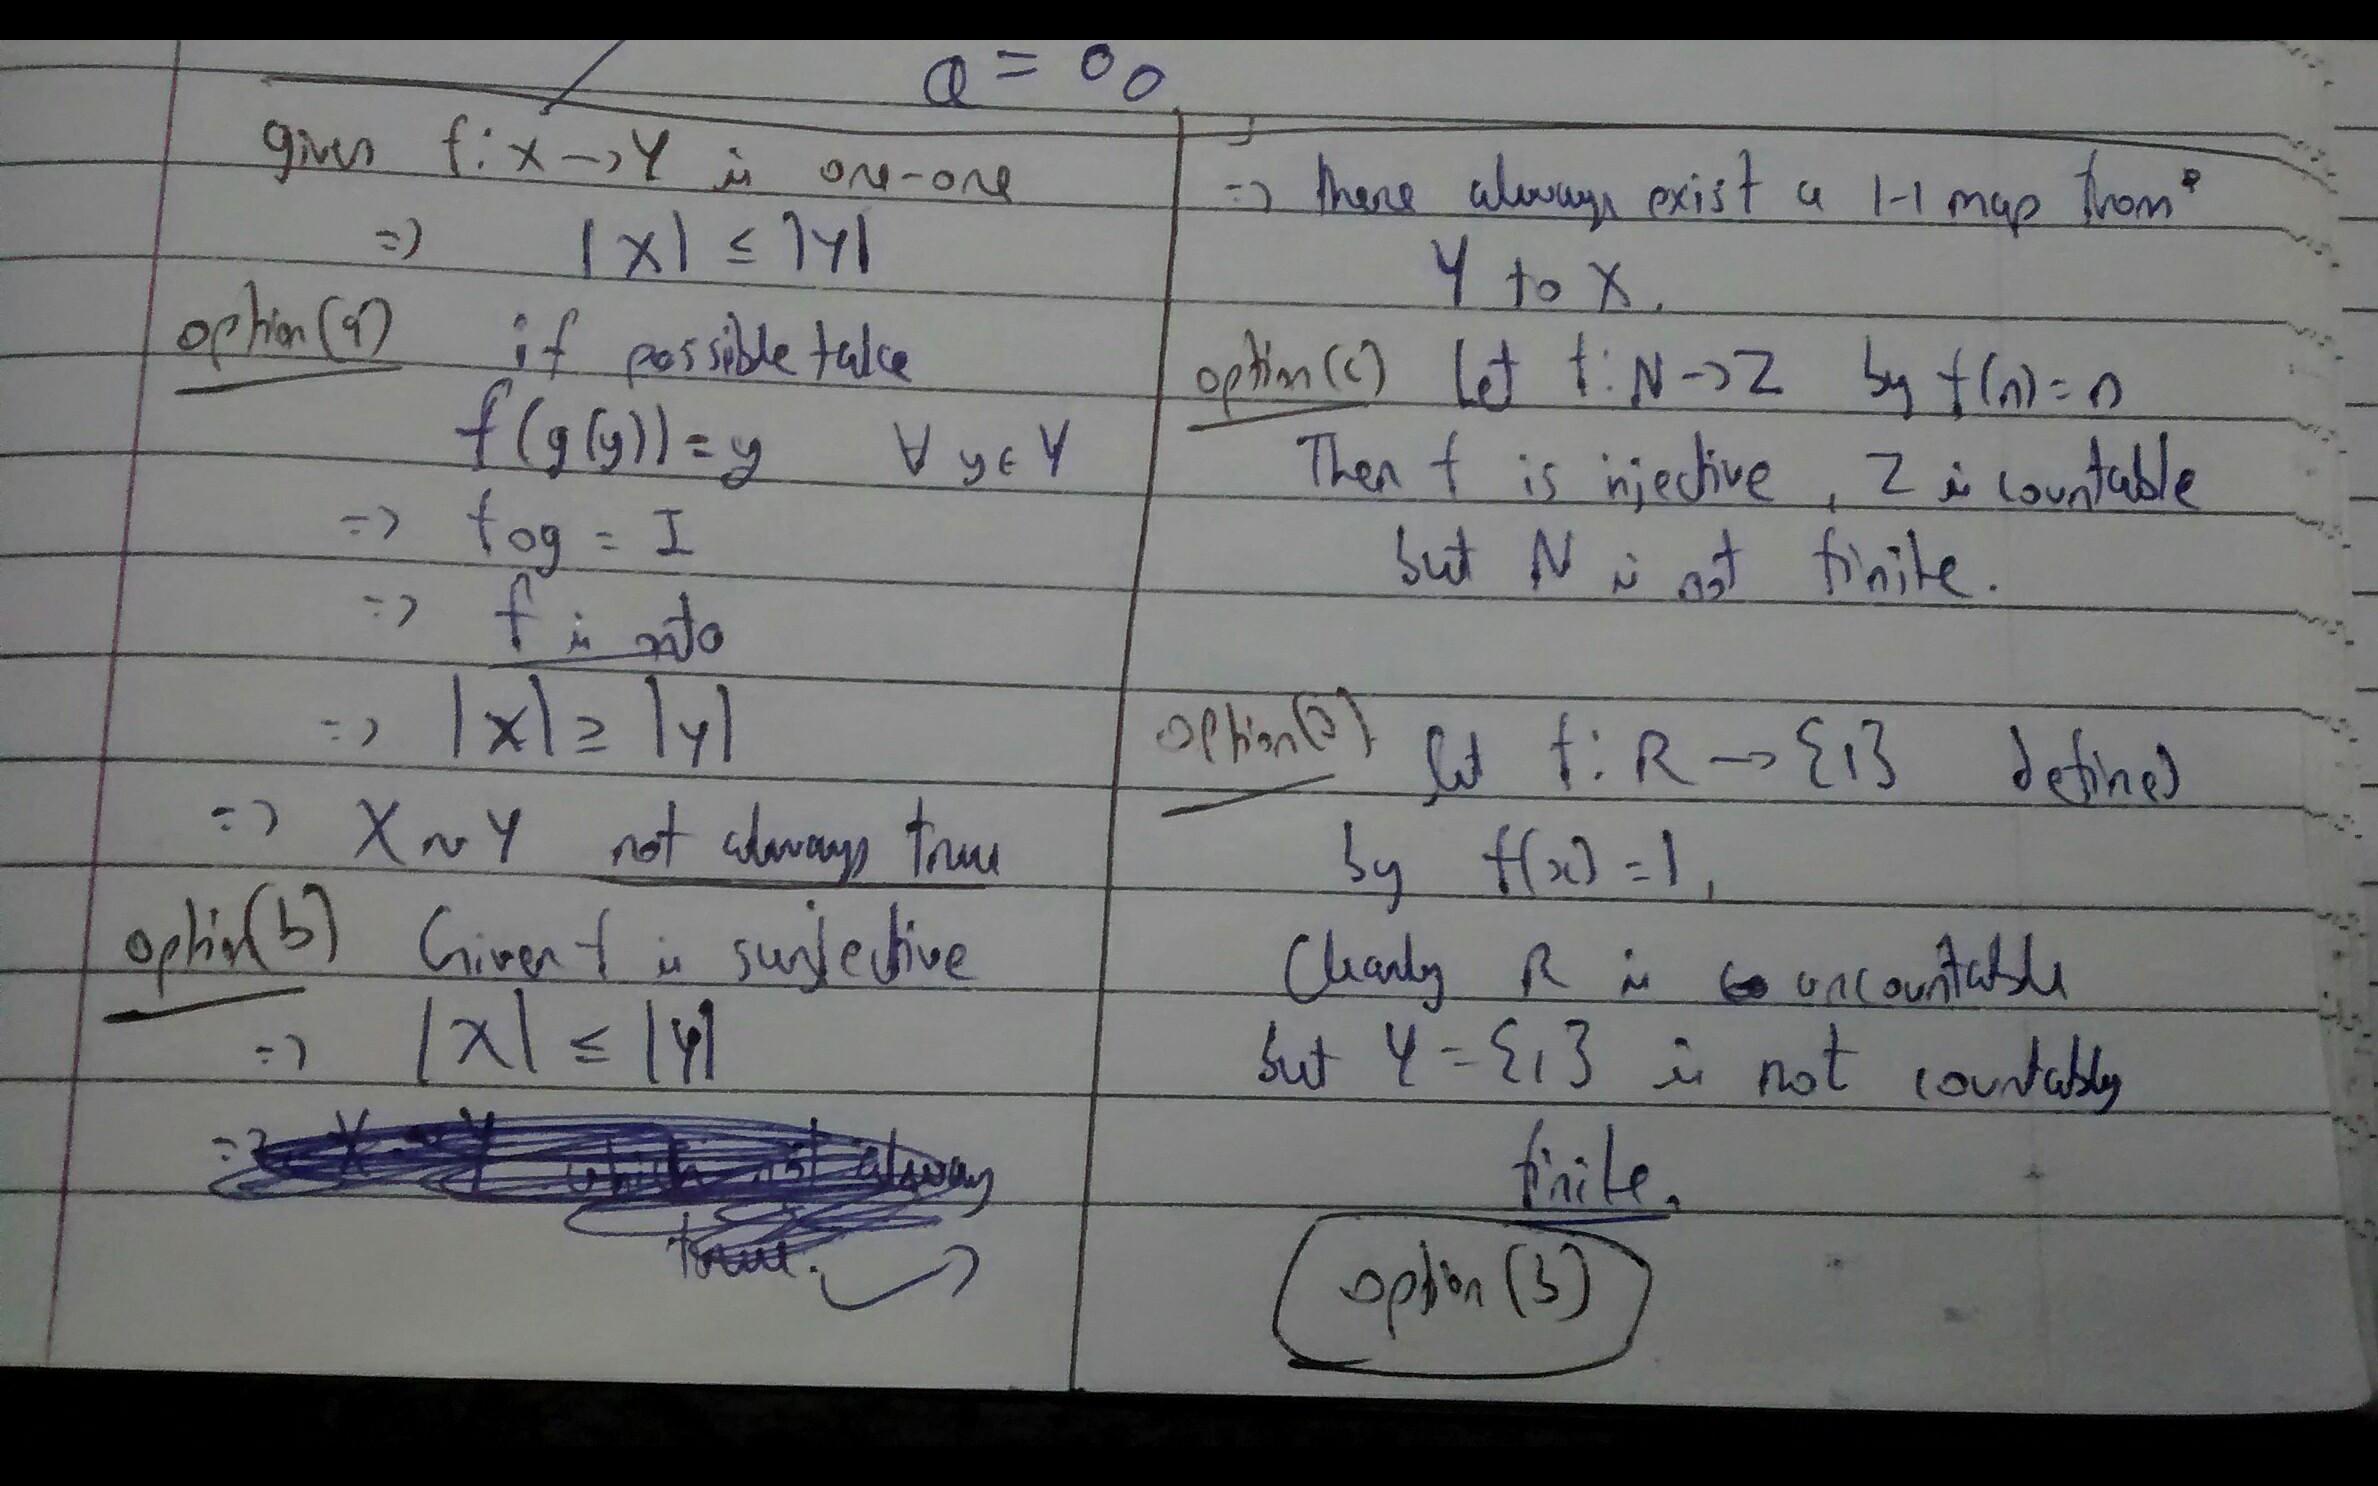 Q = 00
given f: X → Y is one-one
⇒ |X| ≤ |Y|
option(a) if possible take
f(g(y)) = y ∀ y ∈ Y
⇒ fog = I
⇒ f is onto
⇒ |X| ≥ |Y|
⇒ X ~ Y not always true
option(b) Given f is surjective
⇒ |X| ≤ |Y|
⇒ X ~ Y which not always
true.
⇒ there always exist a 1-1 map from
Y to X.
option(c) Let f: N → Z by f(n) = n
Then f is injective, Z is countable
but N is not finite.
option(d) let f: R → {1} defined
by f(x) = 1,
Clearly R is uncountable
but Y = {1} is not countably
finite.
option (b)